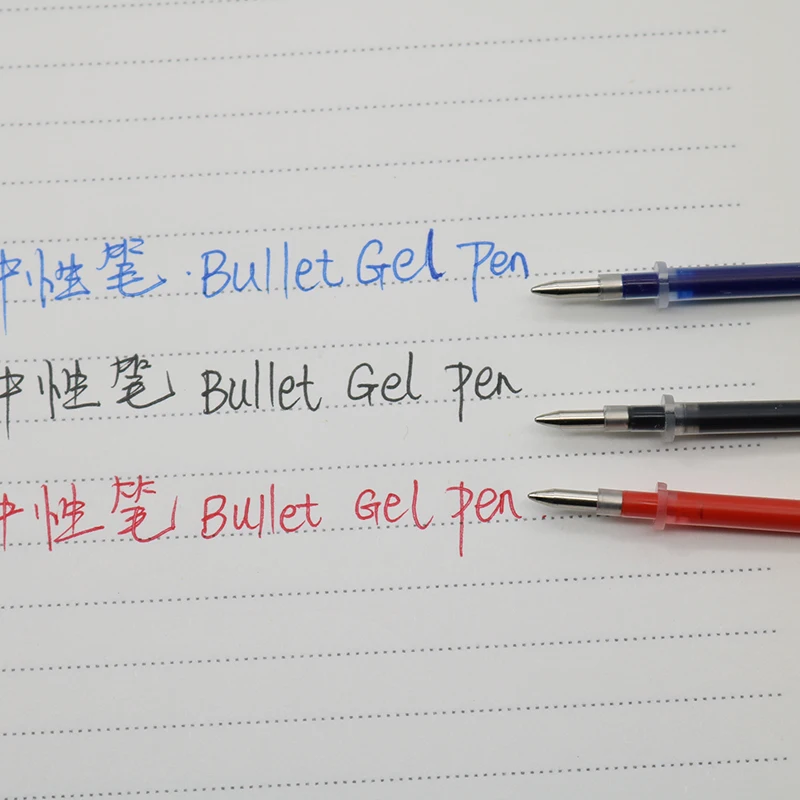 中性笔·Bullet Gel Pen
中性笔 Bullet Gel Pen
中性笔 Bullet Gel Pen